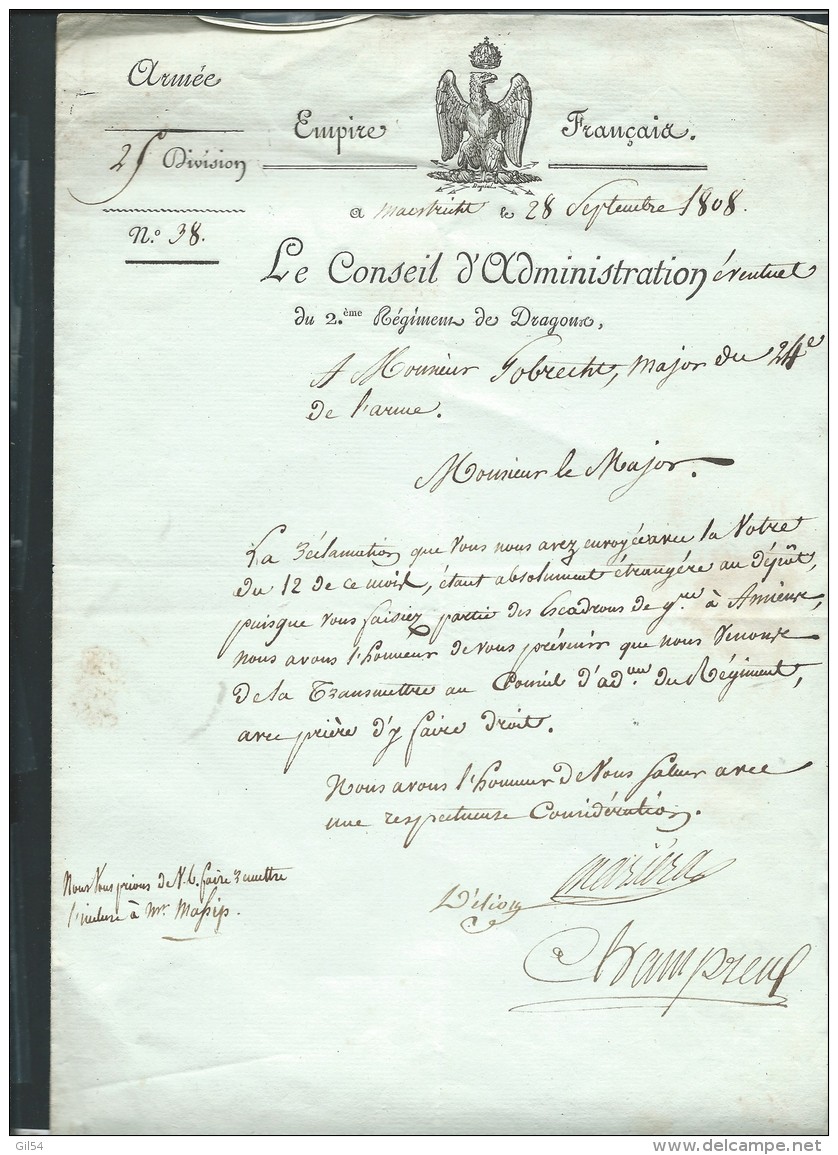 Armée
Empire Français.
25e Division
a Maestricht le 28 Septembre 1808.
N.o 38.
Le Conseil d'Administration éventuel
du 2.ème Régiment de Dragons,
A Monsieur Gobrecht, Major du 24e
de l'arme.
Monsieur le Major.
La Réclamation que Vous nous avez envoyée avec la Votre
du 12 de ce mois, étant absolument étrangère au dépôt,
puisque vous faisiez partie des Escadrons de g.re à Amiens,
nous avons l'honneur de vous prévenir que nous Venons
de la Transmettre au Conseil d'ad.on du Régiment,
avec prière d'y faire droit.
Nous avons l'honneur de Vous Saluer avec
une respectueuse Considération.
Nous Vous prions de V.s faire remettre
l'incluse à Mr. Massip.
Gil54
www.delcampe.net